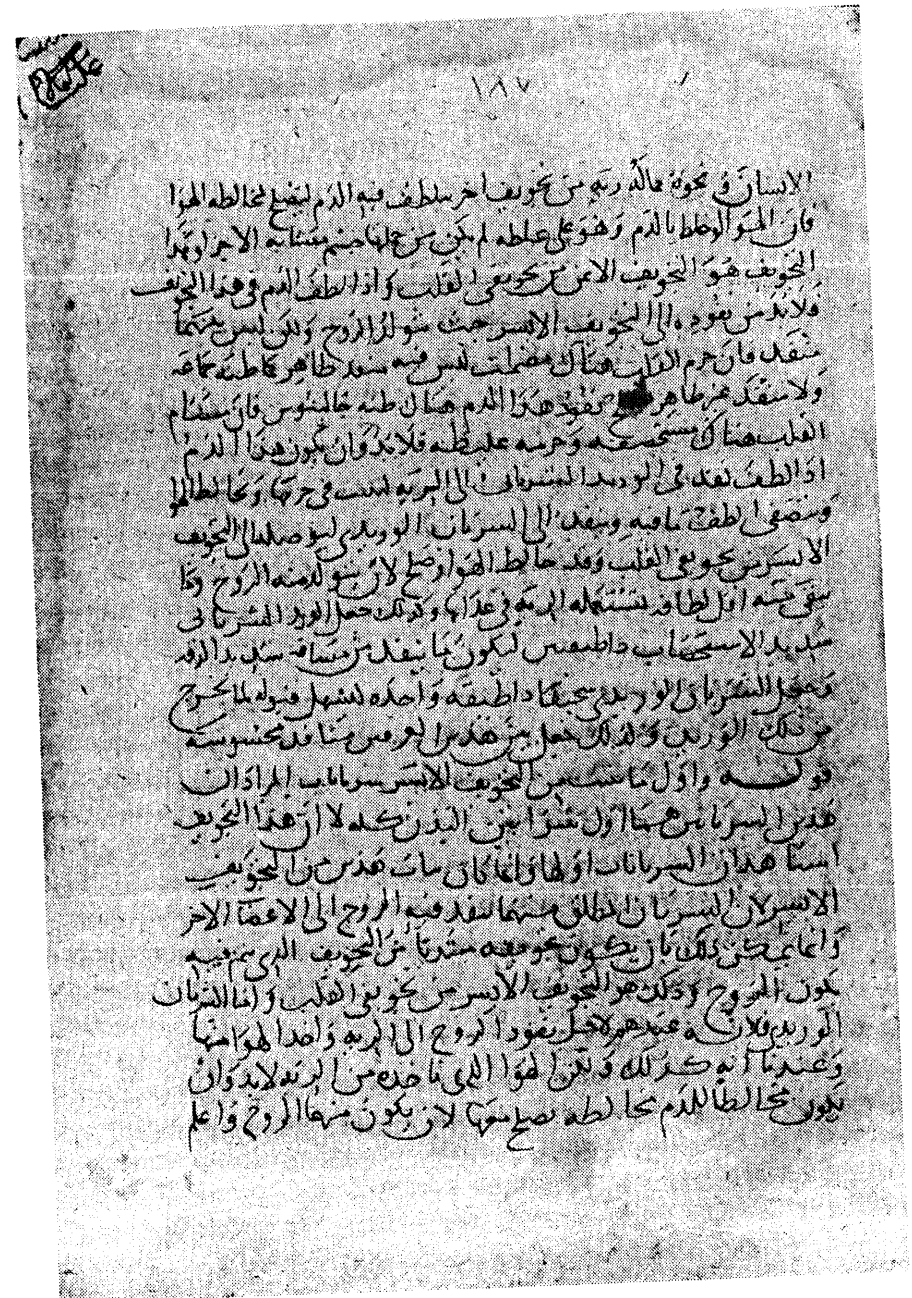 ١٨٧
الانسان و نحوه مماله ريه من تجويف اخر يلطف فيه الدم ليصلح لمخالطه الهوا
فان الهوا لو خلط بالدم و هو على غلظه لم يكن من جملتها جسم متشابه الاجزا و هذا
التجويف هو التجويف الايمن من تجويفي القلب و اذا لطف الدم في هذا التجويف
فلا بد من نفوذه الى التجويف الايسر حيث يتولد الروح و لكن ليس بينهما
منفذ فان جرم القلب هناك مصمت ليس فيه منفذ ظاهر كما ظنه جماعه
ولا منفذ غير ظاهر يصلح لنفوذ هذا الدم كما ظنه جالينوس فان مسام
القلب هناك مستحصفه و جرمه غليظ فلا بد وان يكون هذا الدم
اذا لطف نفذ في الوريد الشرياني الى الريه لينبث في جرمها و يخالط الهوا
و يتصفى الطف ما فيه و ينفذ الى الشريان الوريدي ليوصله الى التجويف
الايسر من تجويفي القلب و قد خالط الهوا و صلح لان يتولد منه الروح و ما
يبقى منه اقل لطافه تستعمله الريه في غذائها و لذلك جعل الوريد الشرياني
شديد الاستحصاف ذا طبقتين ليكون ما ينفذ من مسامه شديد الرقه
و جعل الشريان الوريدي سخيفا ذا طبقه واحده ليسهل قبوله لما يخرج
من ذلك الوريد و لذلك جعل بين هذين العرقين منافذ محسوسه
قوله و اول ما ينبت من التجويف الايسر شريانان المراد ان
هذين الشريانين هما اول شرايين البدن كله لا ان هذا التجويف
انبتا هذان الشريانان اولها و انما كان نبات هذين من التجويف
الايسر لان الشريان المطلق منهما ينفذ فيه الروح الى الاعضا الاخر
و انما يمكن ذلك بان يكون تجويفه مبتدئا من التجويف الذي فيه
يكون الروح و ذلك هو التجويف الايسر من تجويفي القلب و اما الشريان
الوريدي فلانه عندهم لاجل نفوذ الروح الى الريه و اخذ الهوا منها
و عندنا انه كذلك و لكن الهوا الذي ياخذه من الريه لا بد وان
يكون مخالطا للدم مخالطه يصلح معها لان يكون منهما الروح و اعلم